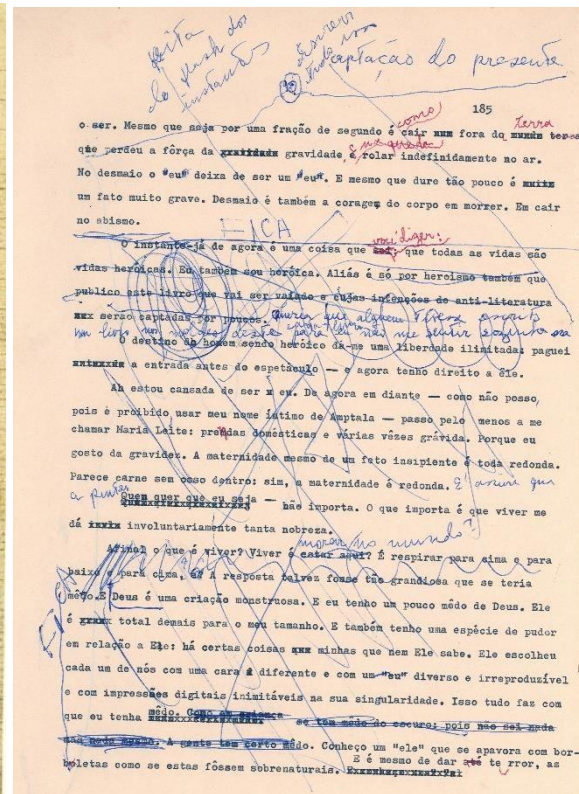 feita
do flash dos
instantes
escrevi
tudo isso
captação do presente
185
o ser. Mesmo que seja por uma fração de segundo é como cair fora do terra
que perdeu a fôrça da gravidade, é na queda rolar indefinidamente no ar.
No desmaio o "eu" deixa de ser um "eu". E mesmo que dure tão pouco é
um fato muito grave. Desmaio é também a coragem do corpo em morrer. Em cair
no abismo.
FICA
O instante-já de agora é uma coisa que voci dizer: que todas as vidas são
vidas heróicas. Eu também sou heróica. Aliás é só por heroismo também que
publico este livro que vai ser vaiado e cujas infenções de anti-literatura
serão captadas por poucos. Queria que alguem tivesse escrito
um livro nos moldes deste para eu não me sentir sozinha
O destino do homem sendo heróico dá-me uma liberdade ilimitada: paguei
a entrada antes do espetáculo — e agora tenho direito a êle.
Ah estou cansada de ser eu. De agora em diante — como não posso,
pois é proibido usar meu nome íntimo de Amptala — passo pelo menos a me
chamar Maria Leite: prendas domésticas e várias vêzes grávida. Porque eu
gosto da gravidez. A maternidade mesmo de um feto insipiente é toda redonda.
Parece carne sem osso dentro: sim, a maternidade é redonda. É assim que
Quem quer que eu seja — não importa. O que importa é que viver me
dá involuntariamente tanta nobreza.
morar no mundo?
Afinal o que é viver? Viver é estar aqui? É respirar para cima e para
baixo e para cima. A resposta talvez fosse tão grandiosa que se teria
mêdo. E Deus é uma criação monstruosa. E eu tenho um pouco mêdo de Deus. Ele
é total demais para o meu tamanho. E também tenho uma espécie de pudor
em relação a Ele: há certas coisas minhas que nem Ele sabe. Ele escolheu
cada um de nós com uma cara diferente e com um "eu" diverso e irreproduzível
e com impressões digitais inimitáveis na sua singularidade. Isso tudo faz com
que eu tenha mêdo. se tem medo do escuro: pois não sei nada
A gente tem certo mêdo. Conheço um "ele" que se apavora com bor-
boletas como se estas fôssem sobrenaturais. E é mesmo de dar até terror, as